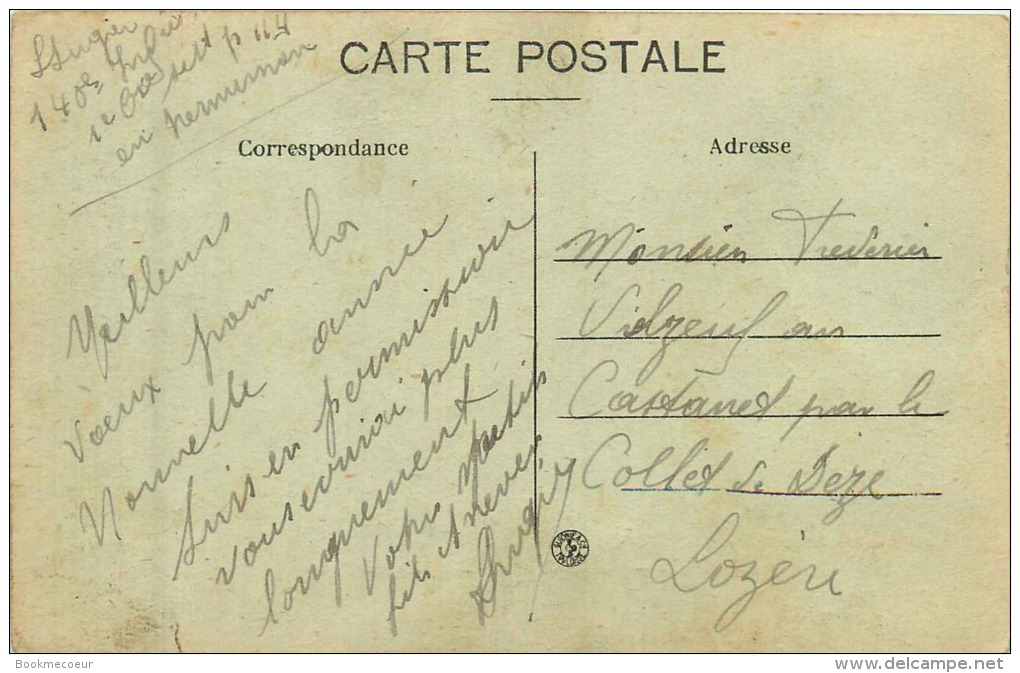 CARTE POSTALE
en permission
Correspondance
Meilleurs
Voeux pour la
Nouvelle année
Suis en permission
vous ecrirai plus
longuement
Votre petit
fils
Adresse
Monsieur Frederic
Vidzeuf au
Castanet par le
Collet de Dèze
Lozère
Bookmecoeur
www.delcampe.net